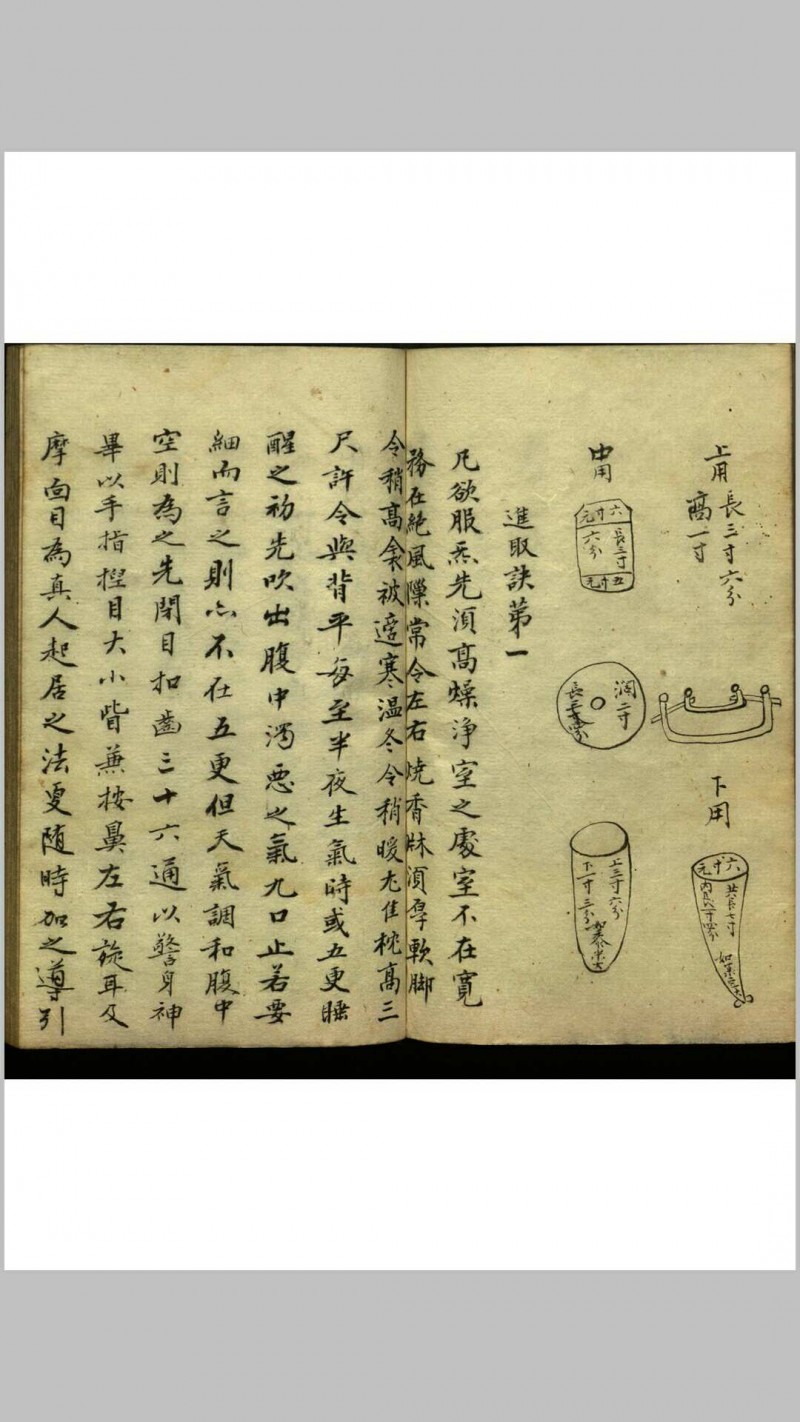 上用
長三寸六分
高一寸
下用
六寸元
共長七寸
中用
六寸元
長三寸
六分
五寸元
濶二寸
上三寸六分
下一寸三分
進取訣第一
凡欲服炁先須高燥淨室之處室不在寬
務在絶風隙常令左右燒香牀須厚軟脚
令稍高衾被適寒温冬令稍暖尤佳枕高三
尺許令與背平每至半夜生氣時或五更睡
醒之初先吹出腹中濁惡之氣九口止若要
細而言之則亦不在五更但天氣調和腹中
空則為之先閉目扣齒三十六通以警身神
畢以手指捏目大小眥兼按鼻左右旋耳及
摩面目為真人起居之法更随時加之導引